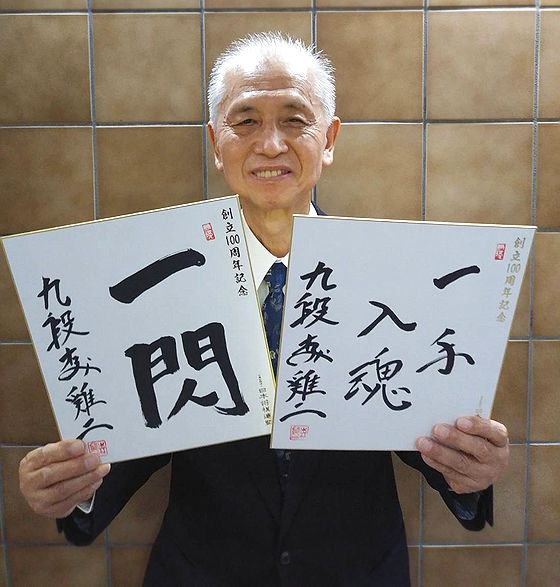 創立100周年記念
一閃
日本将棋連盟
九段 森雞二
創立100周年記念
一手
入魂
九段 森雞二